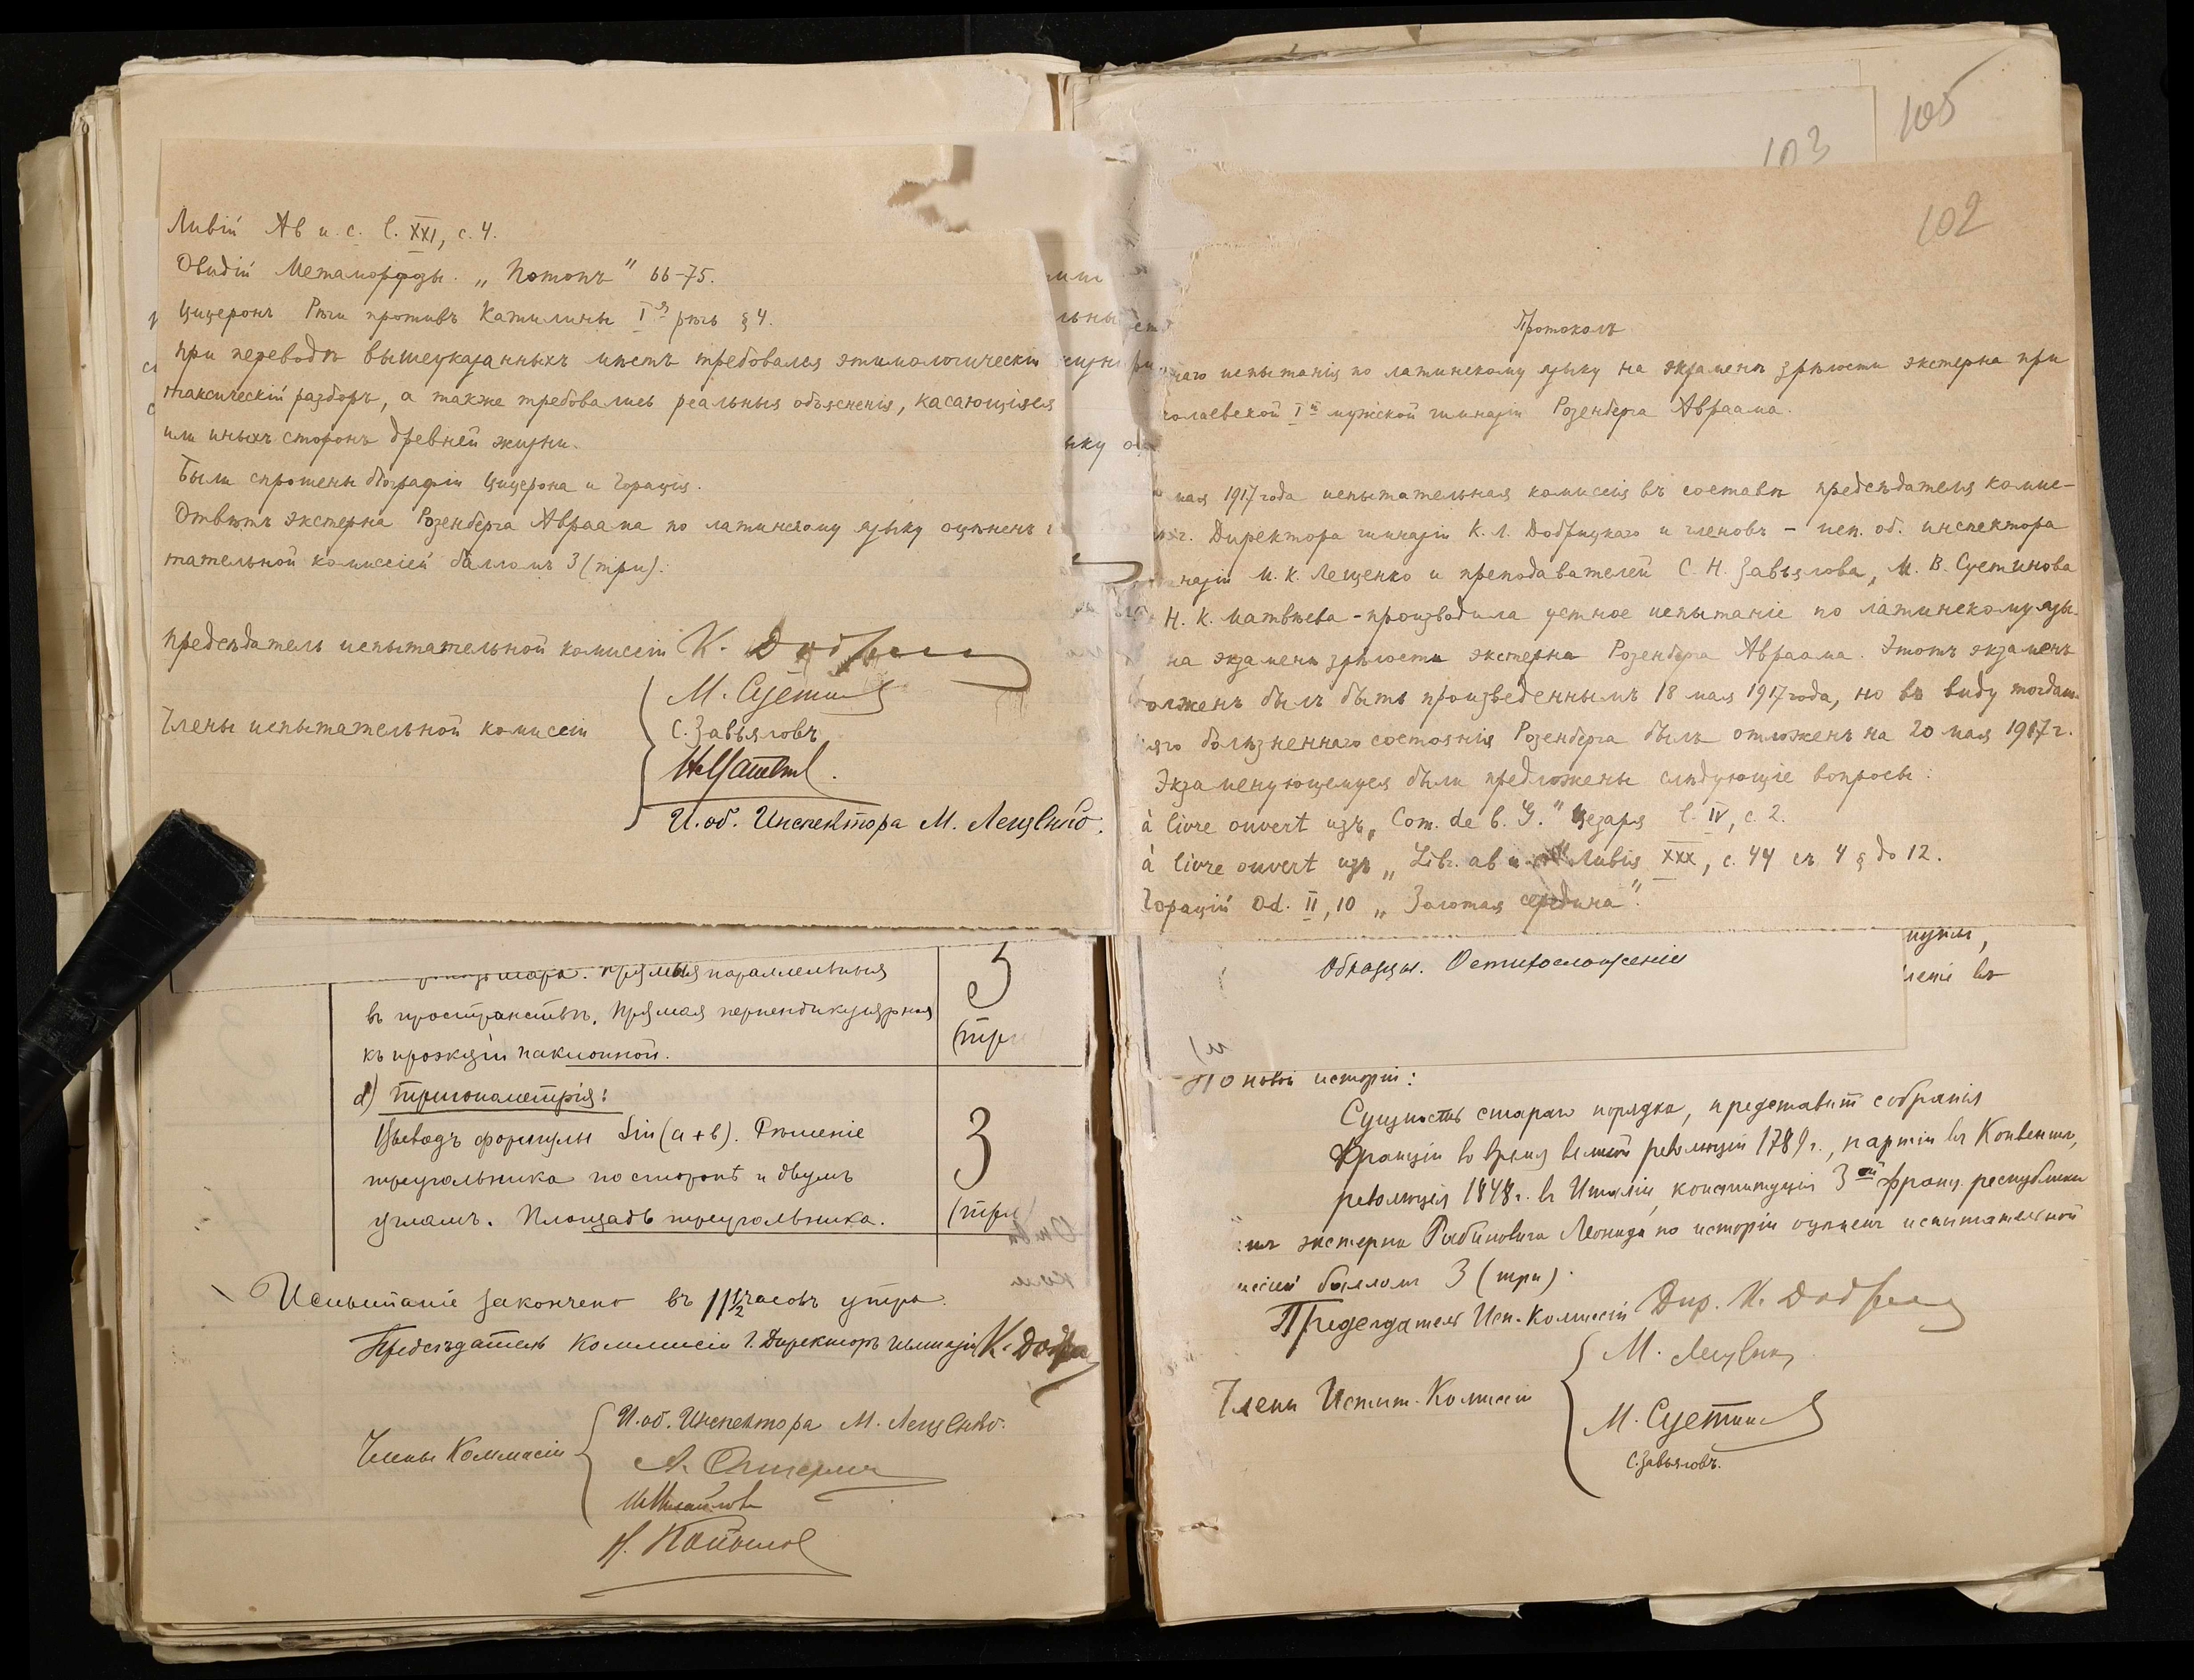 Ливій Ab u. c. l. XXI, c. 4.
Овидій Метаморфозы. „Потопъ" 66-75.
Цицеронъ Рѣчи противъ Катилины I-я рѣчь § 4.
При переводѣ вышеуказанныхъ мѣстъ требовался этимологическій
таксическій разборъ, а также требовались реальныя объясненія, касающіяся
или иныхъ сторонъ древней жизни.
Были спрошены біографіи Цицерона и Горація.
Отвѣтъ экстерна Розенберга Авраама по латинскому языку оцѣненъ
тательной комиссіей балломъ 3 (три).
Предсѣдатель испытательной комиссіи К. Доб
Члены испытательной комиссіи
М. Сустин
С. Завьяловъ
И. об. Инспектора М. Лещенко.
прямыя параллельныя
въ пространствѣ. Прямая перпендикулярная
къ проэкціи наклонной.
3
(три
d) Тригонометрія:
Выводъ формулы Sin (a + b). Рѣшеніе
треугольника по сторонѣ и двумъ
угламъ. Площадь треугольника.
3
(три)
Испытаніе закончено въ 11 1/2 часовъ утра.
Предсѣдатель Коммисіи Г. Директоръ гимназіи К. Доб
Члены Коммисіи
И. об. Инспектора М. Лещенко.
105
103
102
Протоколъ
наго испытанія по латинскому языку на экзаменѣ зрѣлости экстерна при
колаевской I-й мужской гимназіи Розенберга Авраама.
мая 1917 года испытательная комиссія въ составѣ предсѣдателя комис-
г. Директора гимназіи К. Л. Добрицкаго и членовъ - исп. об. инспектора
назіи М. К. Лещенко и преподавателей С. Н. Завьялова, М. В. Сустинова
Н. К. Матвѣева - производила устное испытаніе по латинскому язы-
на экзаменѣ зрѣлости экстерна Розенберга Авраама. Этотъ экзаменъ
олженъ былъ быть произведеннымъ 18 мая 1917 года, но въ виду тогдаш-
няго болѣзненнаго состоянія Розенберга былъ отложенъ на 20 мая 1917 г.
Экзаменующемуся были предложены слѣдующіе вопросы:
à livre ouvert изъ „Com. de b. G." Цезаря l. IV, c. 2.
à livre ouvert изъ „Lib. ab u. Ливія XXX, c. 44 съ 4 § до 12.
Горацій Od. II, 10 „Золотая середина".
Образцы. Остихосложеніи
По новой исторіи:
Сущность стараго порядка, представит собранія
Франціи во время великой революціи 1789 г., партіи въ Конвентѣ,
революція 1848 г. въ Италіи, конституція 3-ей франц. республики
экстерна Рабиновича Леонида по исторіи оцѣненъ испытательной
миссіей балломъ 3 (три).
Предсѣдатель Исп. Комиссіи Дир. К. Доб
Члены Испыт. Комиссіи
М. Лещенко
М. Сустин
С. Завьяловъ.